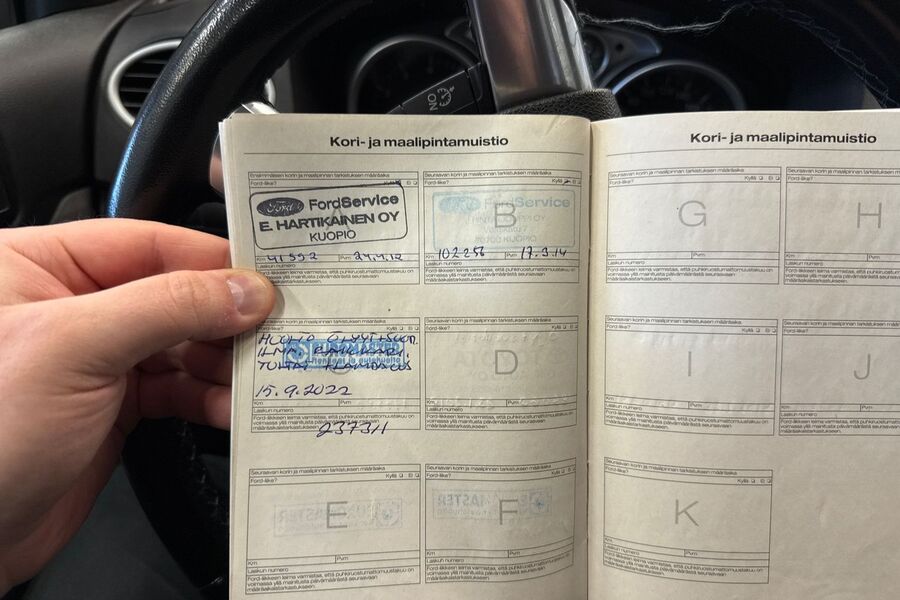 Kori- ja maalipintamuistio
Ensimmäisen korin ja maalipinnan tarkistuksen määräaika
Ford-liike? Kyllä Ei
Ford FordService
E. HARTIKAINEN OY
KUOPIO
Km 41552 Pvm
Laskun numero
Ford-liikkeen leima varmistaa, että puhkiruostumattomuustakuu on
voimassa yllä mainitusta päivämäärästä seuraavaan
määräaikaistarkastukseen.
Seuraavan korin ja maalipinnan tarkistuksen määräaika
Ford-liike? Kyllä Ei
Ford FordService
B
KUOPIO
Km 102256 Pvm 17.3.14
Laskun numero
Ford-liikkeen leima varmistaa, että puhkiruostumattomuustakuu on
voimassa yllä mainitusta päivämäärästä seuraavaan
määräaikaistarkastukseen.
Seuraavan korin ja maalipinnan tarkistuksen määräaika
Ford-liike? Kyllä Ei
HUOLTO ÖLJYT/SUOD.
15.9.2022
Km Pvm
Laskun numero
Ford-liikkeen leima varmistaa, että puhkiruostumattomuustakuu on
voimassa yllä mainitusta päivämäärästä seuraavaan
määräaikaistarkastukseen.
237311
Seuraavan korin ja maalipinnan tarkistuksen määräaika
Ford-liike? Kyllä Ei
D
Km Pvm
Laskun numero
Ford-liikkeen leima varmistaa, että puhkiruostumattomuustakuu on
voimassa yllä mainitusta päivämäärästä seuraavaan
määräaikaistarkastukseen.
Seuraavan korin ja maalipinnan tarkistuksen määräaika
Ford-liike? Kyllä Ei
E
Km Pvm
Laskun numero
Ford-liikkeen leima varmistaa, että puhkiruostumattomuustakuu on
voimassa yllä mainitusta päivämäärästä seuraavaan
määräaikaistarkastukseen.
Seuraavan korin ja maalipinnan tarkistuksen määräaika
Ford-liike? Kyllä Ei
F
Km Pvm
Laskun numero
Ford-liikkeen leima varmistaa, että puhkiruostumattomuustakuu on
voimassa yllä mainitusta päivämäärästä seuraavaan
määräaikaistarkastukseen.
Kori- ja maalipintamuistio
Seuraavan korin ja maalipinnan tarkistuksen määräaika
Ford-liike? Kyllä Ei
G
Km Pvm
Laskun numero
Ford-liikkeen leima varmistaa, että puhkiruostumattomuustakuu on
voimassa yllä mainitusta päivämäärästä seuraavaan
määräaikaistarkastukseen.
Seuraavan korin ja maalipinnan tarkistuksen
Ford-liike?
H
Km Pvm
Laskun numero
Ford-liikkeen leima varmistaa, että
voimassa yllä mainitusta päivämäärästä
määräaikaistarkastukseen.
Seuraavan korin ja maalipinnan tarkistuksen määräaika
Ford-liike? Kyllä Ei
I
Km Pvm
Laskun numero
Ford-liikkeen leima varmistaa, että puhkiruostumattomuustakuu on
voimassa yllä mainitusta päivämäärästä seuraavaan
määräaikaistarkastukseen.
Seuraavan korin ja maalipinnan tarkistuksen
Ford-liike?
J
Km Pvm
Laskun numero
Ford-liikkeen leima varmistaa, että
voimassa yllä mainitusta päivämäärästä
määräaikaistarkastukseen.
Seuraavan korin ja maalipinnan tarkistuksen määräaika
Ford-liike? Kyllä Ei
K
Km Pvm
Laskun numero
Ford-liikkeen leima varmistaa, että puhkiruostumattomuustakuu on
voimassa yllä mainitusta päivämäärästä seuraavaan
määräaikaistarkastukseen.
ON